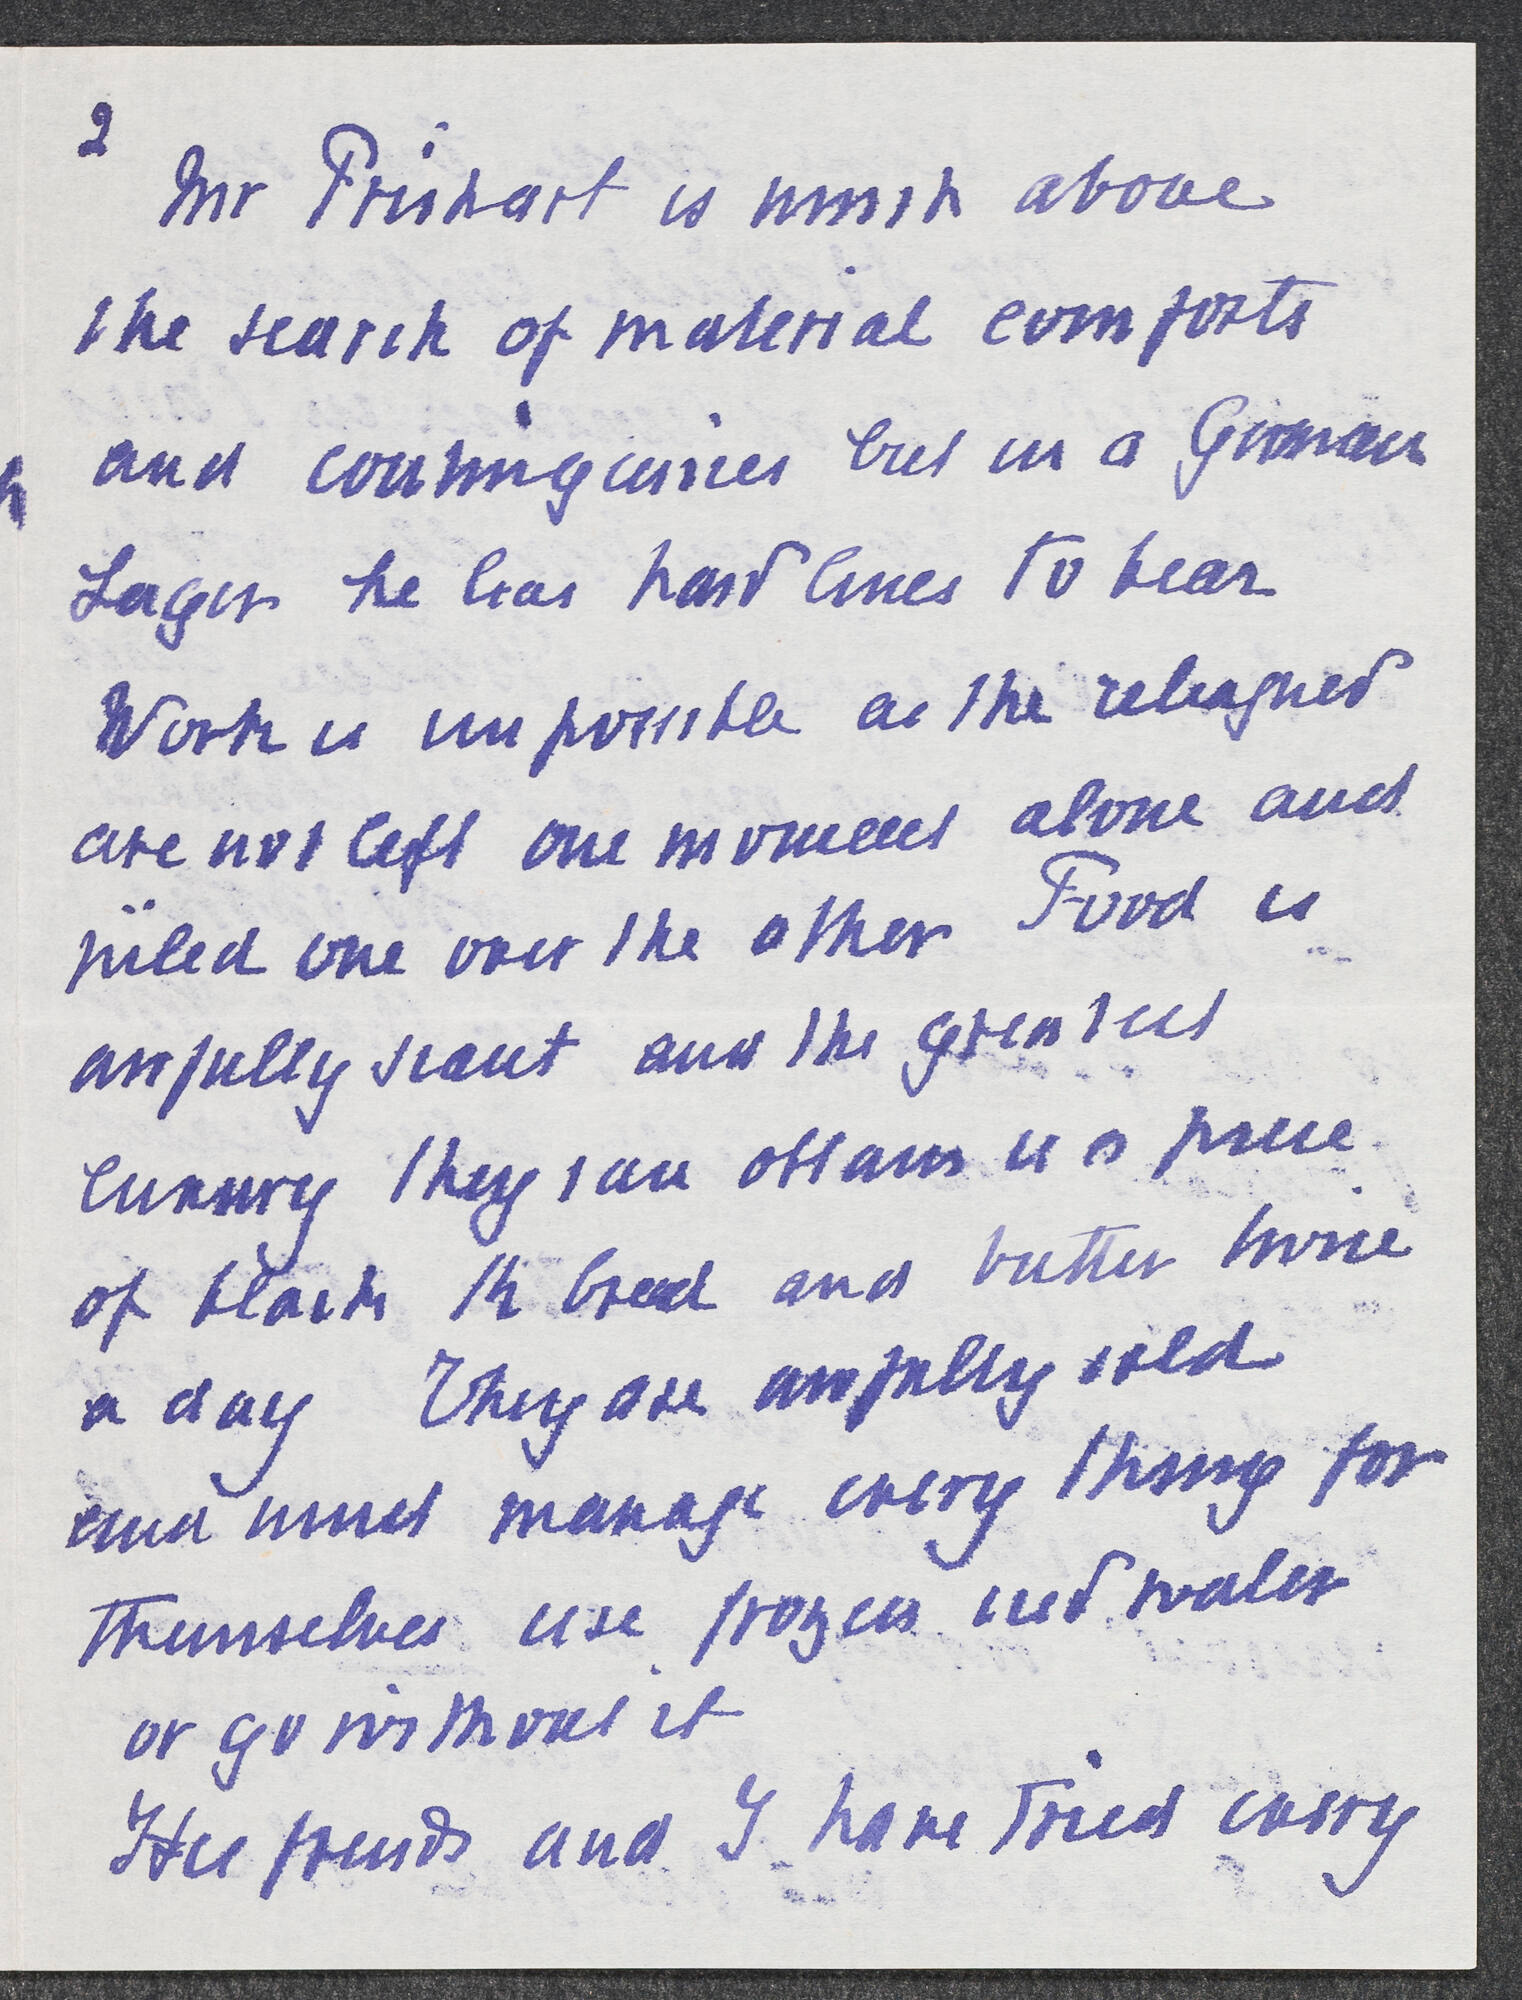 2
Mr Prichart is much above
the search of material comforts
and contingencies but in a German
Lager he has hard lines to bear
Work is impossible as the relegued
are not left one moment alone and
piled one over the other Food is
awfully scant and the greatest
luxury they can obtain is a piece
of black bread and butter twice
a day They are awfully cold
and must manage every thing for
themselves use frozen water
or go without it
His friends and I have tried every